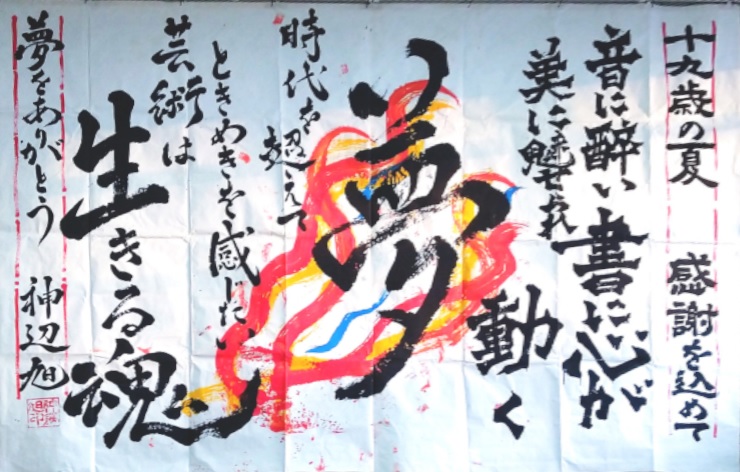 十九歳の夏 感謝を込めて
音に酔い書に心が
美に魅せられ
動く
夢
時代を超えて
ときめきを感じたい
芸術は
生きる魂
夢をありがとう 神辺旭